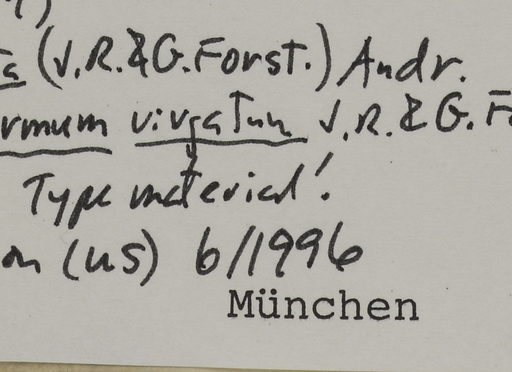 (J.R.&G.Forst.) Andr.
rmum virgatum J.R.&G.F
Type material!
on (US) 6/1996
München